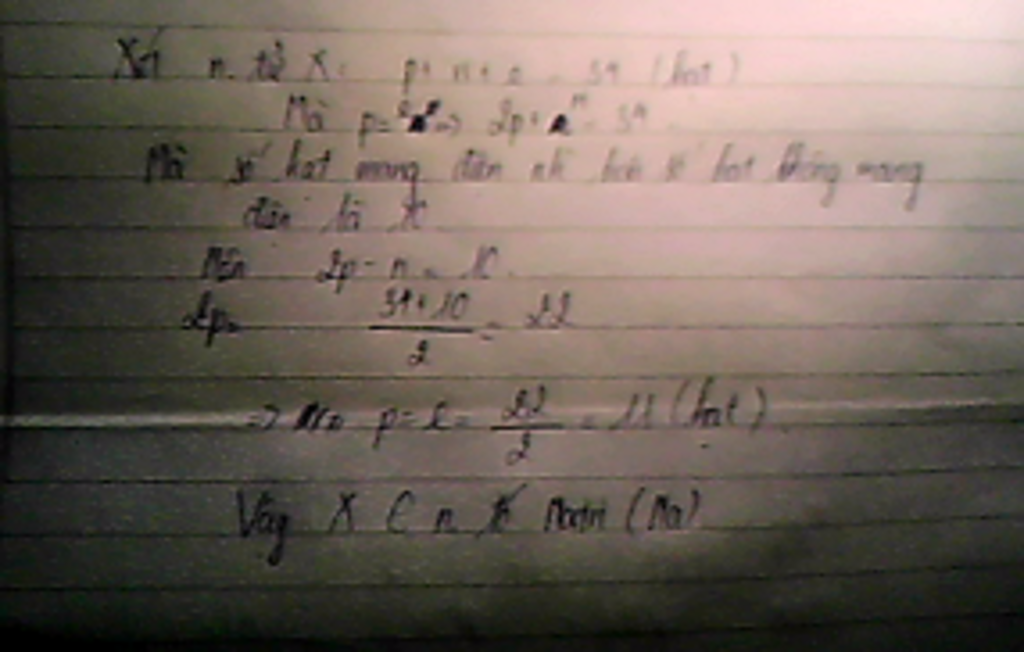 Xét n. tử X: p + n + e = 34 (hạt)
Mà p = e => 2p + n = 34
Mà số hạt mang điện nh hơn số hạt không mang
điện là 10
Nên 2p - n = 10.
2p = (34+10)/2 = 22
=> p = e = 22/2 = 11 (hạt)
Vậy X C n. tố Natri (Na)